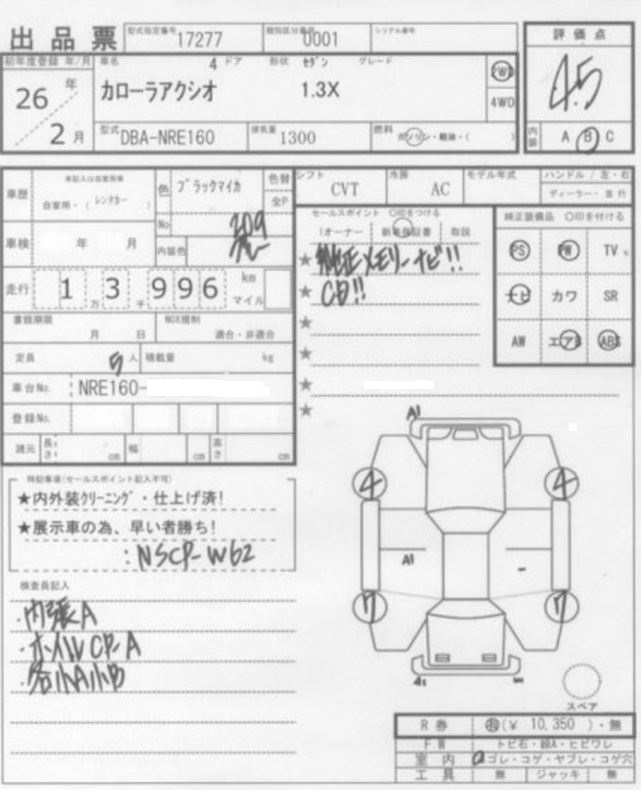 出品票 型式指定番号 17277 類別区分番号 0001 シリアル番号
評価点
4.5
内装 A B C
初年度登録 年/月 車名 4 ドア 形状 セダン グレード
26年 カローラアクシオ 1.3X 2WD
2月 4WD
型式 DBA-NRE160 排気量 1300 燃料 ガソリン・軽油・( )
車歴 未記入は自家用車 自家用・(レンタカー) 色 ブラックマイカ 色替 全P
シフト CVT 冷房 AC モデル年式 ハンドル/左・右
ディーラー・並行
車検 年 月 No 209 内装色
セールスポイント ○印をつける
1オーナー 新車保証書 取説
★純正メモリーナビ!!
★CD!!
★
★
★
★
純正装備品 ○印を付ける
PS PW TV
ナビ カワ SR
AW エアB ABS
走行 1 3 996 万 千 km マイル
書類期限 月 日 NOX規制 適合・非適合
定員 5人 積載量 kg
車台No. NRE160-
登録No.
諸元 長さ cm 幅 cm 高さ cm
特記事項(セールスポイント記入不可)
★内外装クリーニング・仕上げ済!
★展示車の為、早い者勝ち!
:NSCP-W62
検査員記入
・内張A
・ホイルCP-A
・各小A小B
A1
4 4
A1
7 7
スペア
R券 (¥ 10,350)・無
FW トビ石・線A・ヒビワレ
室内 ゴレ・コゲ・ヤブレ・コゲ穴
工具 無 ジャッキ 無